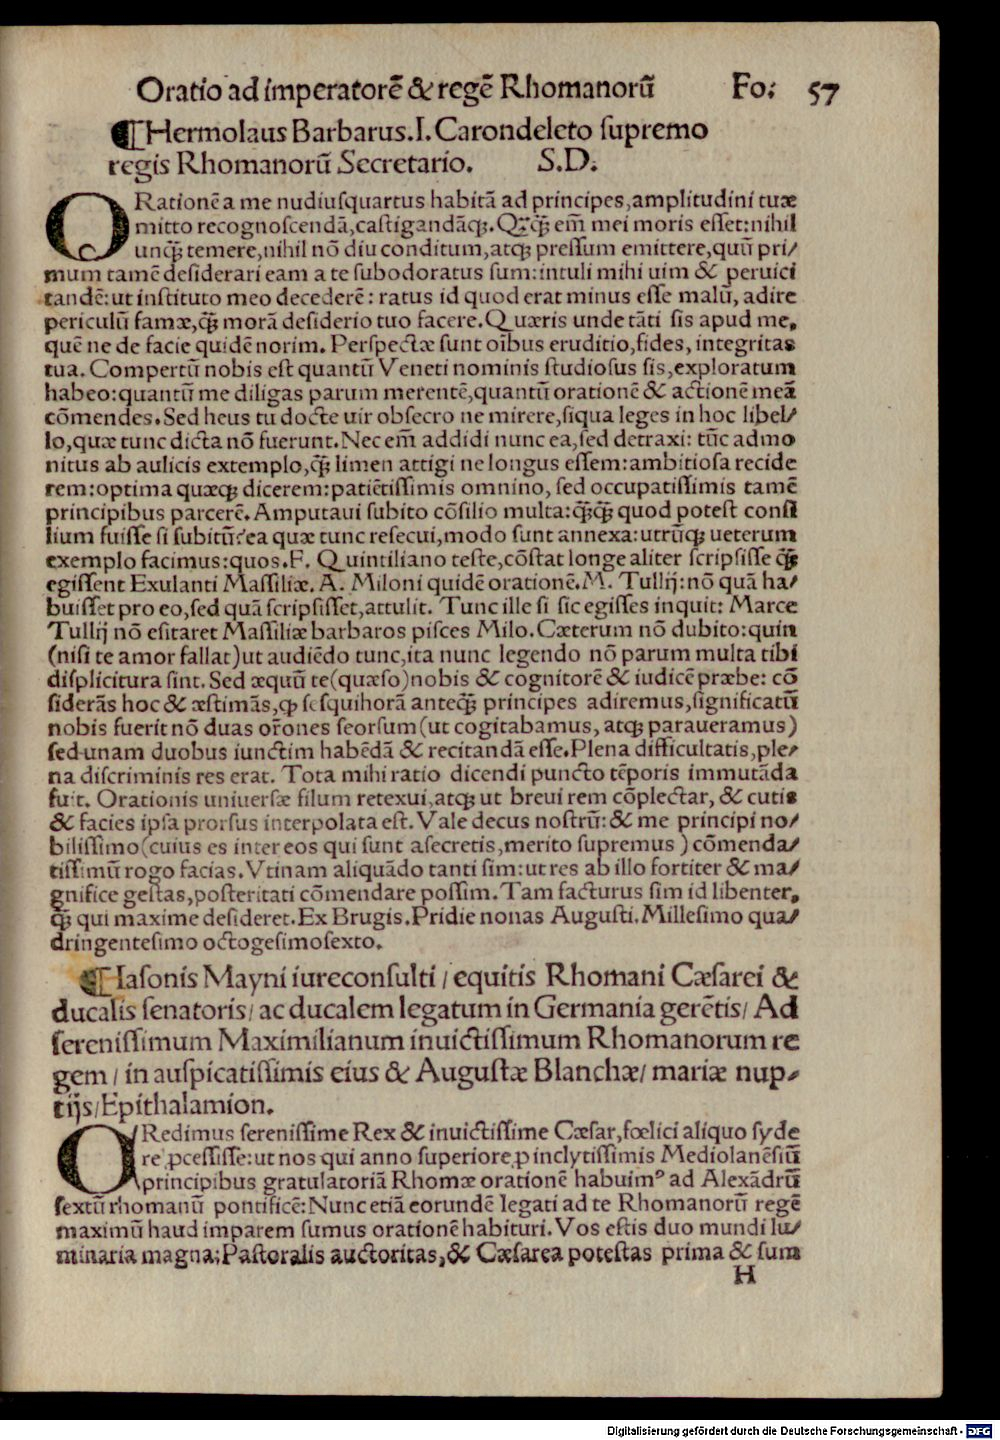 Oratio ad imperatorē & regē Rhomanorū Fo: 57
¶Hermolaus Barbarus.I.Carondeleto ſupremo
regis Rhomanorū Secretario. S.D.
ORationē a me nudiuſquartus habitā ad principes,amplitudini tuæ
mitto recognoſcendā,caſtigandāq;. Qꝫq̄ꝫ em̄ mei moris eſſet:nihil
unq̄ꝫ temere,nihil nō diu conditum,atqꝫ preſſum emittere,quū pri/
mum tamē deſiderari eam a te ſubodoratus ſum:intuli mihi uim & peruici
tandē:ut inſtituto meo decederē: ratus id quod erat minus eſſe malū, adire
periculū famæ,q̄ꝫ morā deſiderio tuo facere.Quæris unde tāti ſis apud me,
quē ne de facie quidē norim. Perſpectæ ſunt oībus eruditio,fides, integritas
tua. Compertū nobis eſt quantū Veneti nominis ſtudioſus ſis,exploratum
habeo:quantū me diligas parum merentē,quantū orationē & actionē meā
cōmendes.Sed heus tu docte uir obſecro ne mirere,ſiqua leges in hoc libel/
lo,quæ tunc dicta nō fuerunt.Nec em̄ addidi nunc ea,ſed detraxi: tūc admo
nitus ab aulicis extemplo,q̄ꝫ limen attigi ne longus eſſem:ambitioſa recide
rem:optima quæqꝫ dicerem:patiētiſſimis omnino, ſed occupatiſſimis tamē
principibus parcerē.Amputaui ſubito cōſilio multa:q̄ꝫq̄ꝫ quod poteſt conſi
lium fuiſſe ſi ſubitū?ea quæ tunc reſecui,modo ſunt annexa:utrūqꝫ ueterum
exemplo facimus:quos.F. Quintiliano teſte,cōſtat longe aliter ſcripſiſſe q̄ꝫ
egiſſent Exulanti Maſſiliæ. A. Miloni quidē orationē.M. Tullij:nō quā ha/
buiſſet pro eo,ſed quā ſcripſiſſet,attulit. Tunc ille ſi ſic egiſſes inquit: Marce
Tullij nō eſitaret Maſſiliæ barbaros piſces Milo.Cæterum nō dubito:quin
(niſi te amor fallat)ut audiēdo tunc,ita nunc legendo nō parum multa tibi
diſplicitura ſint. Sed æquū te(quæſo)nobis & cognitorē & iudicē præbe: cō
ſiderās hoc & æſtimās,ꝙ ſeſquihorā anteq̄ꝫ principes adiremus,ſignificatū
nobis fuerit nō duas or̄ones ſeorſum(ut cogitabamus, atqꝫ paraueramus)
ſed unam duobus iunctim habēdā & recitandā eſſe.Plena difficultatis,ple/
na diſcriminis res erat. Tota mihi ratio dicendi puncto tēporis immutāda
fuit. Orationis uniuerſæ filum retexui,atqꝫ ut breui rem cōplectar, & cutis
& facies ipſa prorſus interpolata eſt.Vale decus noſtrū: & me principi no/
biliſſimo(cuius es inter eos qui ſunt aſecretis,merito ſupremus ) cōmenda/
tiſſimū rogo facias.Vtinam aliquādo tanti ſim:ut res ab illo fortiter & ma/
gnifice geſtas,poſteritati cōmendare poſſim.Tam facturus ſim id libenter,
q̄ꝫ qui maxime deſideret.Ex Brugis.Pridie nonas Auguſti.Milleſimo qua/
dringenteſimo octogeſimoſexto.
¶Iaſonis Mayni iureconſulti / equitis Rhomani Cæſarei &
ducalis ſenatoris/ ac ducalem legatum in Germania gerētis/ Ad
ſereniſſimum Maximilianum inuictiſſimum Rhomanorum re
gem / in auſpicatiſſimis eius & Auguſtæ Blanchæ/ mariæ nup/
tijs/Epithalamion.
CRedimus ſereniſſime Rex & inuictiſſime Cæſar,fœlici aliquo ſyde
re ꝓceſſiſſe:ut nos qui anno ſuperiore ꝓ inclytiſſimis Mediolanēſiū
principibus gratulatoriā Rhomæ orationē habuimꝰ ad Alexādrū
ſextū rhomanū pontificē:Nunc etiā eorundē legati ad te Rhomanorū regē
maximū haud imparem ſumus orationē habituri. Vos eſtis duo mundi lu/
minaria magna:Paſtoralis auctoritas,& Cæſarea poteſtas prima & ſum
H
Digitalisierung gefördert durch die Deutsche Forschungsgemeinschaft - DFG